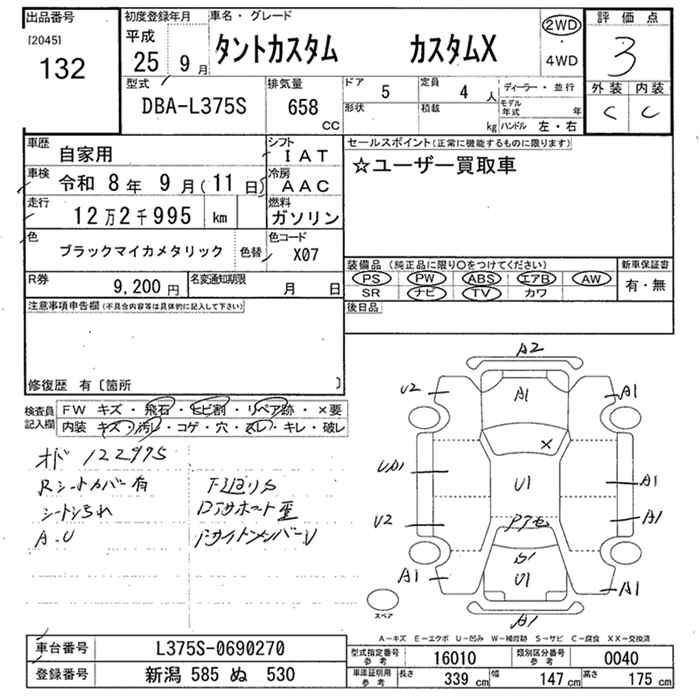 出品番号
[2045]
132
初度登録年月
平成
25 9 月
車名・グレード
タントカスタム カスタムX
2WD
・
4WD
評価点
3
外装 内装
C C
型式
DBA-L375S
排気量
658
cc
ドア
5
形状
定員
4 人
積載
kg
ディーラー・並行
モデル年式 年
ハンドル 左・右
車歴
自家用
シフト
IAT
車検
令和 8 年 9 月(11 日)
冷房
AAC
走行
12 万 2 千 995 km
燃料
ガソリン
色
ブラックマイカメタリック
色替
色コード
X07
R券
9,200 円
名変通知期限
月 日
セールスポイント(正常に機能するものに限ります)
☆ユーザー買取車
装備品(純正品に限り〇をつけてください)
PS ・ PW ・ ABS ・ エアB ・ AW
SR ナビ ・ TV ・ カワ
新車保証書
有・無
後日品
注意事項申告欄(不具合内容等は具体的に記入して下さい)
修復歴 有〔箇所 〕
検査員記入欄
FW キズ・飛石・ヒビ割・リペア跡・×要
内装 キズ・汚レ・コゲ・穴・スレ・キレ・破レ
オド 122995
Rシートカバー有
シート汚れ
A.U
下廻りS
A2
A1
U2
A1
×
U1
A1
U2
A1
S1
U1
A1
A1
A1
スペア
A-キズ E-エクボ U-凹み W-補修跡 S-サビ C-腐食 XX-交換済
車台番号
L375S-0690270
登録番号
新潟 585 ぬ 530
型式指定番号
参考
16010
類別区分番号
参考
0040
車庫証明用
参考
長さ
339 cm
幅
147 cm
高さ
175 cm